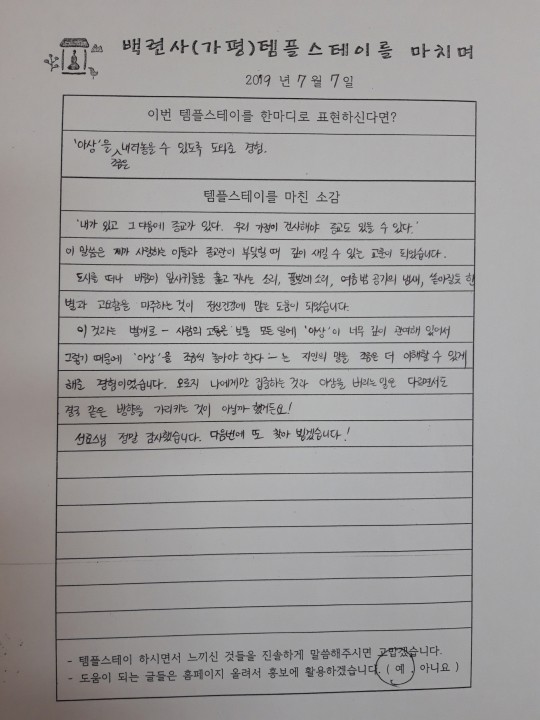 백련사(가평)템플스테이를 마치며
2019 년 7 월 7 일
이번 템플스테이를 한마디로 표현하신다면?
'아상'을 조금은 내려놓을 수 있도록 도와준 경험.
템플스테이를 마친 소감
'내가 있고 그 다음에 종교가 있다. 우리 가정이 건사해야 종교도 있을 수 있다.'
이 말씀은 제가 사랑하는 이들과 종교관이 부딪힐 때 깊이 새길 수 있는 교훈이 되었습니다.
도시를 떠나 바람이 잎사귀들을 훑고 지나는 소리, 풀벌레 소리, 여름밤 공기의 냄새, 쏟아질듯 한
별과 고요함을 마주하는 것이 정신건강에 많은 도움이 되었습니다.
이 것과는 별개로 - 사람의 고통은 보통 모든 일에 '아상'이 너무 깊이 관여해 있어서
그렇기 때문에 '아상'을 조금씩 놓아야 한다 - 는 지인의 말을 조금은 더 이해할 수 있게
해준 경험이었습니다. 오로지 나에게만 집중하는 것과 아상을 버리는 일은 다르면서도
결국 같은 방향을 가리키는 것이 아닐까 했거든요!
선료스님 정말 감사했습니다. 다음번에 또 찾아 뵙겠습니다!
- 템플스테이 하시면서 느끼신 것들을 진솔하게 말씀해주시면 고맙겠습니다.
- 도움이 되는 글들은 홈페이지 올려서 홍보에 활용하겠습니다. ( 예 , 아니요 )